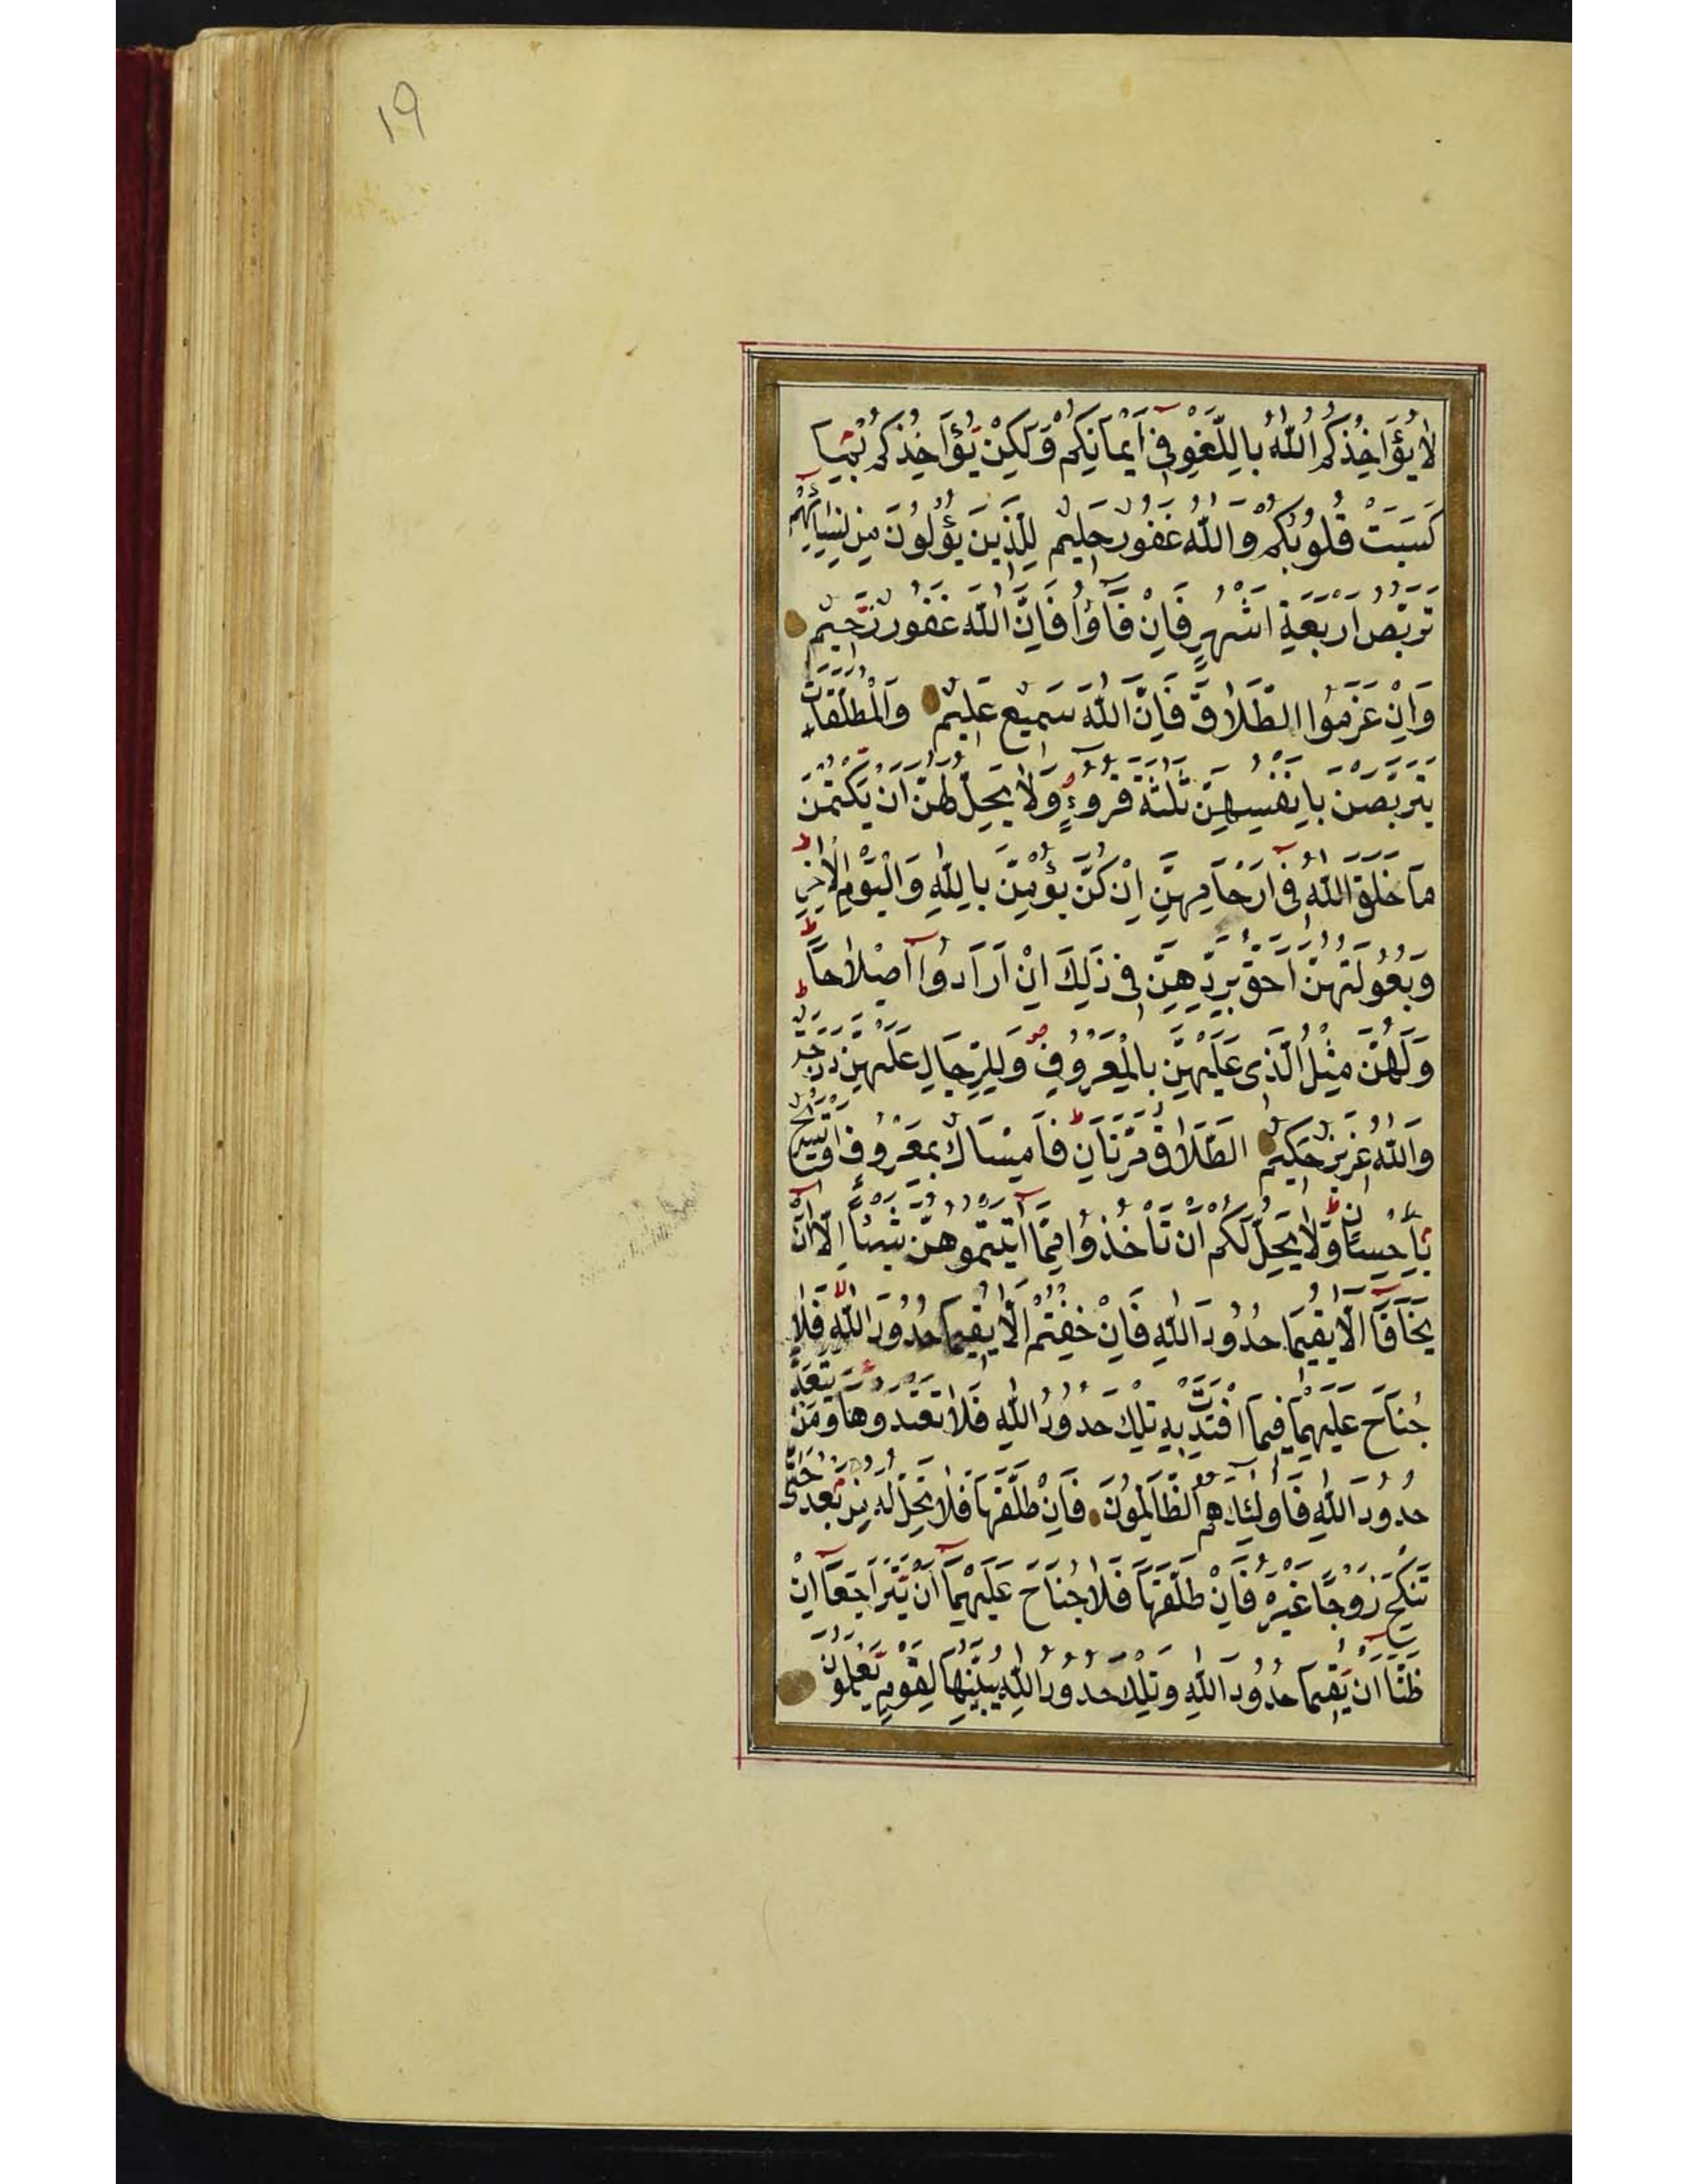 ١٩
لَا يُؤَاخِذُكُمُ اللّٰهُ بِاللَّغْوِ فِي أَيْمَانِكُمْ وَلَكِنْ يُؤَاخِذُكُمْ بِمَا
كَسَبَتْ قُلُوبُكُمْ وَاللّٰهُ غَفُورٌ حَلِيمٌ لِلَّذِينَ يُؤْلُونَ مِنْ نِسَائِهِمْ
تَرَبُّصُ أَرْبَعَةِ أَشْهُرٍ فَإِنْ فَآؤُا فَإِنَّ اللّٰهَ غَفُورٌ رَحِيمٌ
وَإِنْ عَزَمُوا الطَّلَاقَ فَإِنَّ اللّٰهَ سَمِيعٌ عَلِيمٌ وَالْمُطَلَّقَاتُ
يَتَرَبَّصْنَ بِأَنْفُسِهِنَّ ثَلٰثَةَ قُرُوءٍ وَلَا يَحِلُّ لَهُنَّ أَنْ يَكْتُمْنَ
مَا خَلَقَ اللّٰهُ فِي أَرْحَامِهِنَّ إِنْ كُنَّ يُؤْمِنَّ بِاللّٰهِ وَالْيَوْمِ الْآخِرِ
وَبُعُولَتُهُنَّ أَحَقُّ بِرَدِّهِنَّ فِي ذَلِكَ إِنْ أَرَادُوا إِصْلَاحًا
وَلَهُنَّ مِثْلُ الَّذِي عَلَيْهِنَّ بِالْمَعْرُوفِ وَلِلرِّجَالِ عَلَيْهِنَّ دَرَجَةٌ
وَاللّٰهُ عَزِيزٌ حَكِيمٌ الطَّلَاقُ مَرَّتَانِ فَإِمْسَاكٌ بِمَعْرُوفٍ أَوْ تَسْرِيحٌ
بِإِحْسَانٍ وَلَا يَحِلُّ لَكُمْ أَنْ تَأْخُذُوا مِمَّا آتَيْتُمُوهُنَّ شَيْئًا إِلَّا أَنْ
يَخَافَا أَلَّا يُقِيمَا حُدُودَ اللّٰهِ فَإِنْ خِفْتُمْ أَلَّا يُقِيمَا حُدُودَ اللّٰهِ فَلَا
جُنَاحَ عَلَيْهِمَا فِيمَا افْتَدَتْ بِهِ تِلْكَ حُدُودُ اللّٰهِ فَلَا تَعْتَدُوهَا وَمَنْ يَتَعَدَّ
حُدُودَ اللّٰهِ فَأُولَئِكَ هُمُ الظَّالِمُونَ فَإِنْ طَلَّقَهَا فَلَا تَحِلُّ لَهُ مِنْ بَعْدُ حَتَّى
تَنْكِحَ زَوْجًا غَيْرَهُ فَإِنْ طَلَّقَهَا فَلَا جُنَاحَ عَلَيْهِمَا أَنْ يَتَرَاجَعَا إِنْ
ظَنَّا أَنْ يُقِيمَا حُدُودَ اللّٰهِ وَتِلْكَ حُدُودُ اللّٰهِ يُبَيِّنُهَا لِقَوْمٍ يَعْلَمُونَ